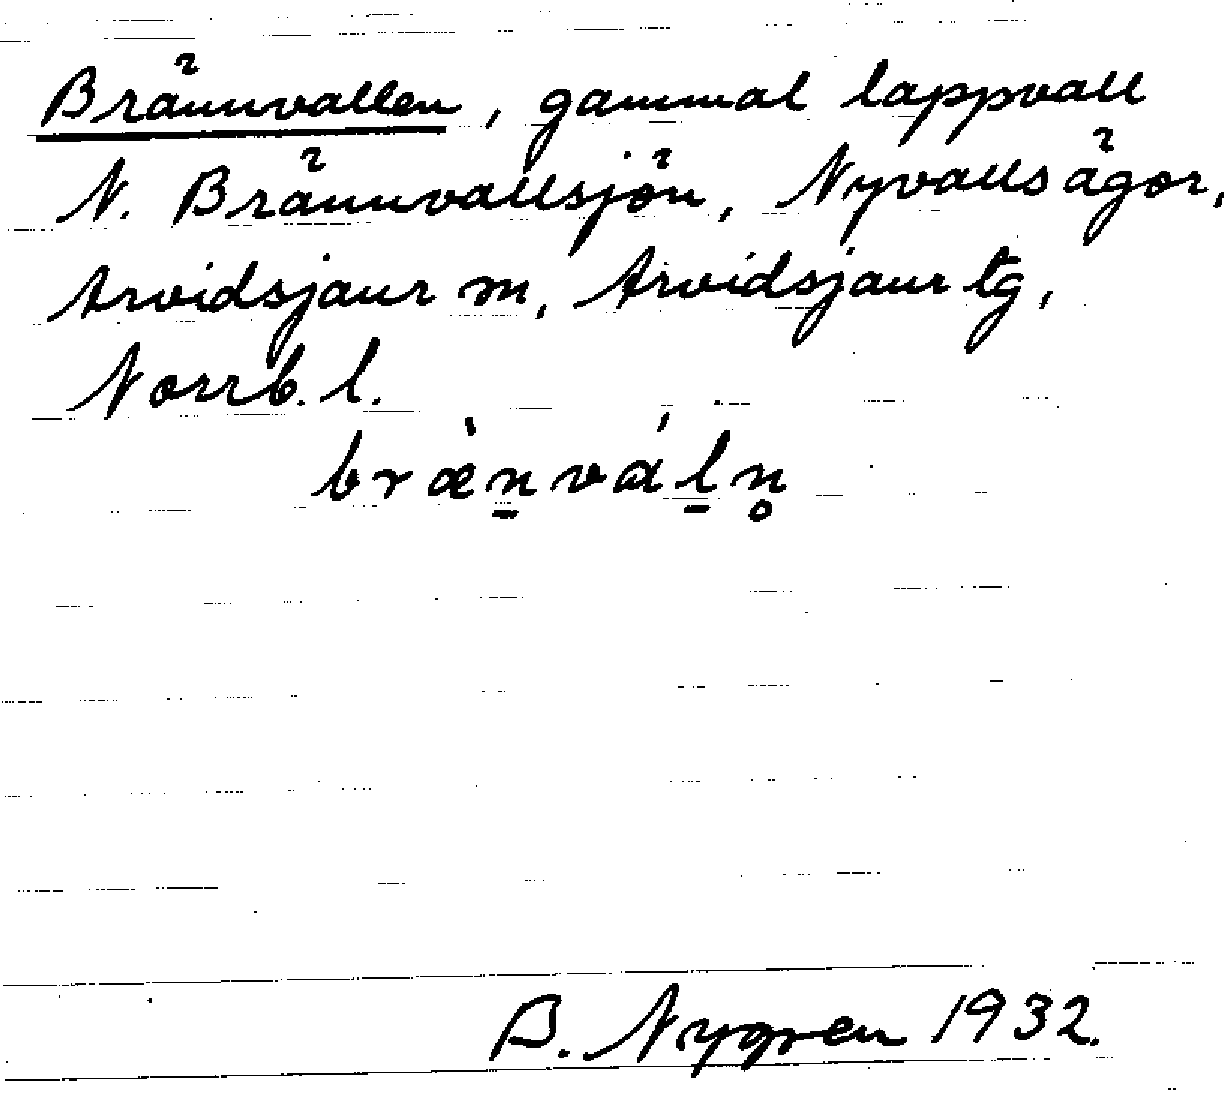 Brännvallen, gammal lappvall
N. Brännvallsjön, Nyvalls ägor,
Arvidsjaur sn, Arvidsjaur tg,
Norrb. l.
bræ̀n̠vá̱l̠n̥
B. Nygren 1932.